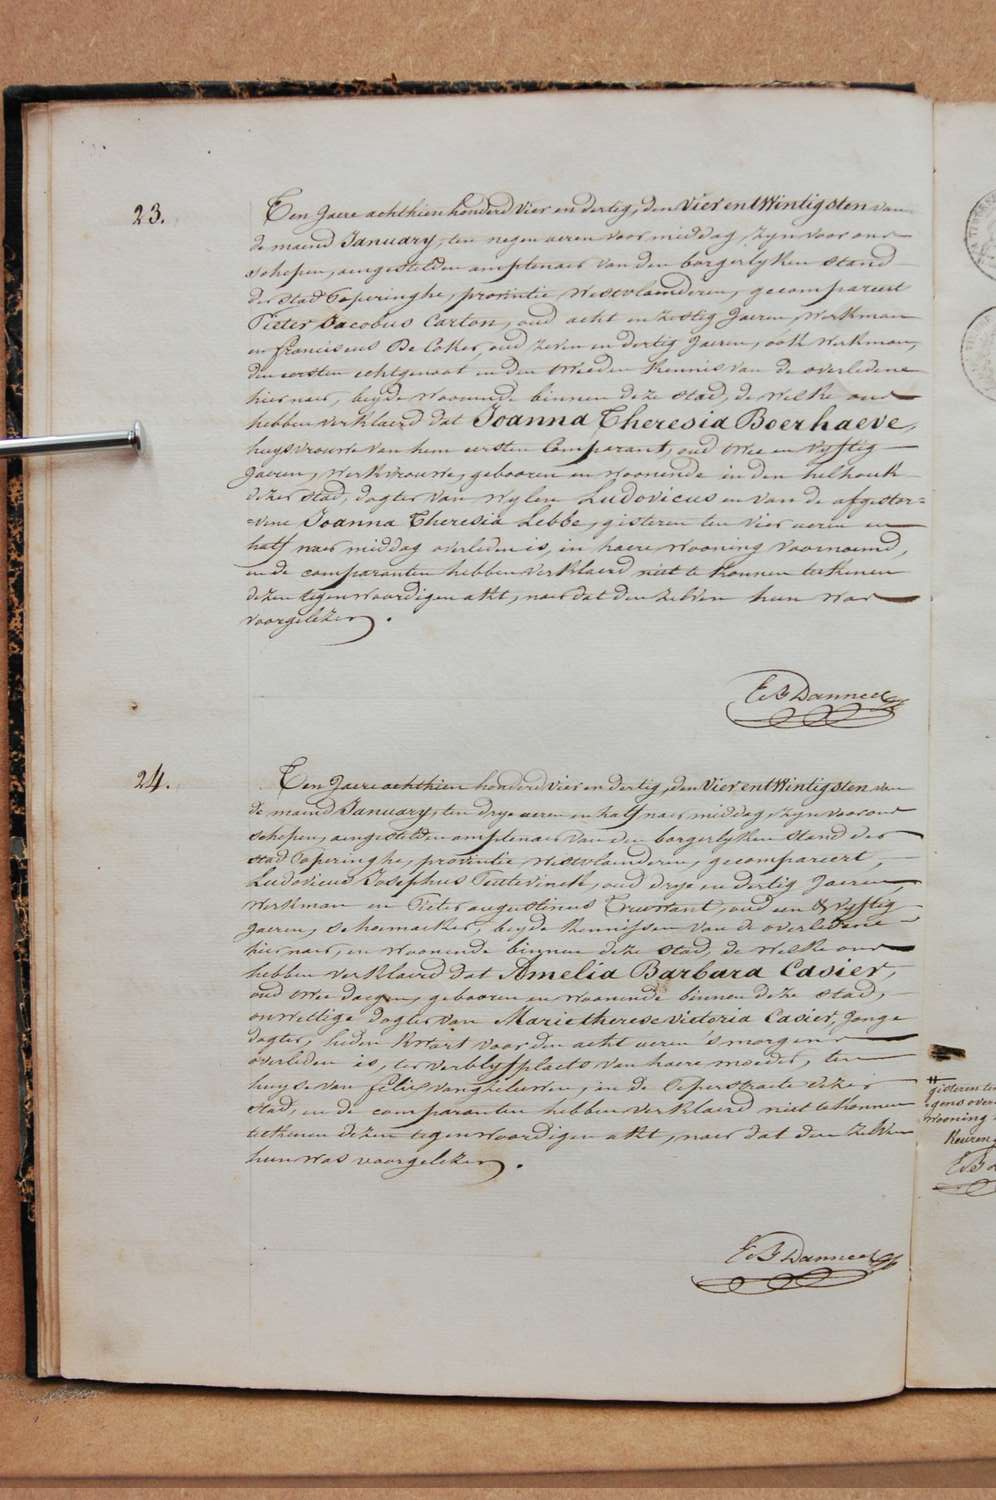 23.
Ten Jaere achthien honderd vier en dertig, den Vier en twintigsten van
de maend January, ten negen ueren voor middag, zyn voor ons
schepen, aengestelden amptenaer van den borgerlyken stand
der stad Poperinghe, provintie Westvlaenderen, gecompareert
Pieter Jacobus Carton, oud acht en zestig Jaeren, Werkman
en franciscus De Coker, oud zeven en dertig Jaeren, ook Werkman,
den eersten echtgenoot en den tweeden kennis van de overledene
hier naer, beyde Woonende binnen deze stad, de welke ons
hebben verklaerd dat Joanna Theresia Boerhaeve,
huysvrouwe van hem eersten Comparant, oud twee en vyftig
Jaeren, Werkvrouwe, gebooren en woonende in den helhoek
dezer stad, dogter van Wylen Ludovicus en van de afgestor=
=vene Joanna Theresia Lebbe, gisteren ten vier ueren en
half naer middag overleden is, in haere Wooning voornoemd,
en de comparanten hebben verklaerd niet te konnen teekenen
dezen tegenwoordigen akt, naer dat den zelven hun was
voorgelezen.
E B Danneel
24.
Ten Jaere achthien honderd vier en dertig, den Vier en twintigsten van
de maend January, ten drye ueren en half naer middag, zyn voor ons
schepen, aengestelden amptenaer van den borgerlyken stand der
stad Poperinghe, provintie Westvlaenderen, gecompareert,
Ludovicus Josephus Tuttevinck, oud drye en dertig Jaeren,
Werkman en Pieter augustinus Truwant, oud een & vyftig
Jaeren, schoemaeker, beyde kennissen van de overledene
hier naer, en Woonende binnen deze stad, de welke ons
hebben verklaerd dat Amelia Barbara Casier,
oud twee daegen, gebooren en woonende binnen deze stad,
onwettige dogter van Marie therese victoria Casier, Jonge
dogter, heden kwart voor den acht ueren s'morgens
overleden is, ter verblyfplaets van haere moeder, ten
huyse van felix vangheluwen, in de Ieperstraete dezer
stad, en de comparanten hebben verklaerd niet te konnen
teekenen dezen tegenwoordigen akt, naer dat den zelven
hun was voorgelezen.
E B Danneel
gisteren te
Wooning
E B